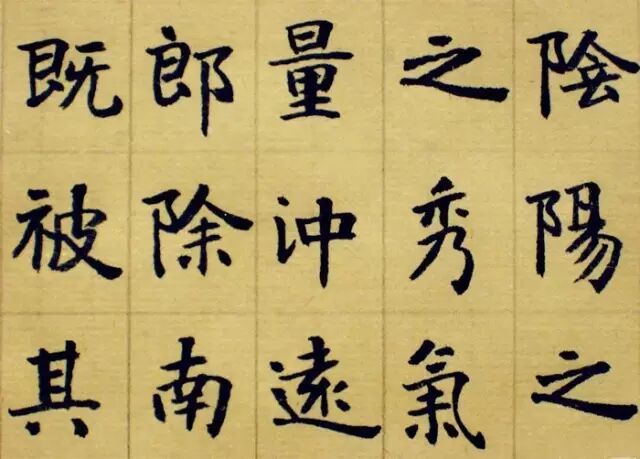 陰陽之
之秀氣
量沖遠
郎除南
既被其